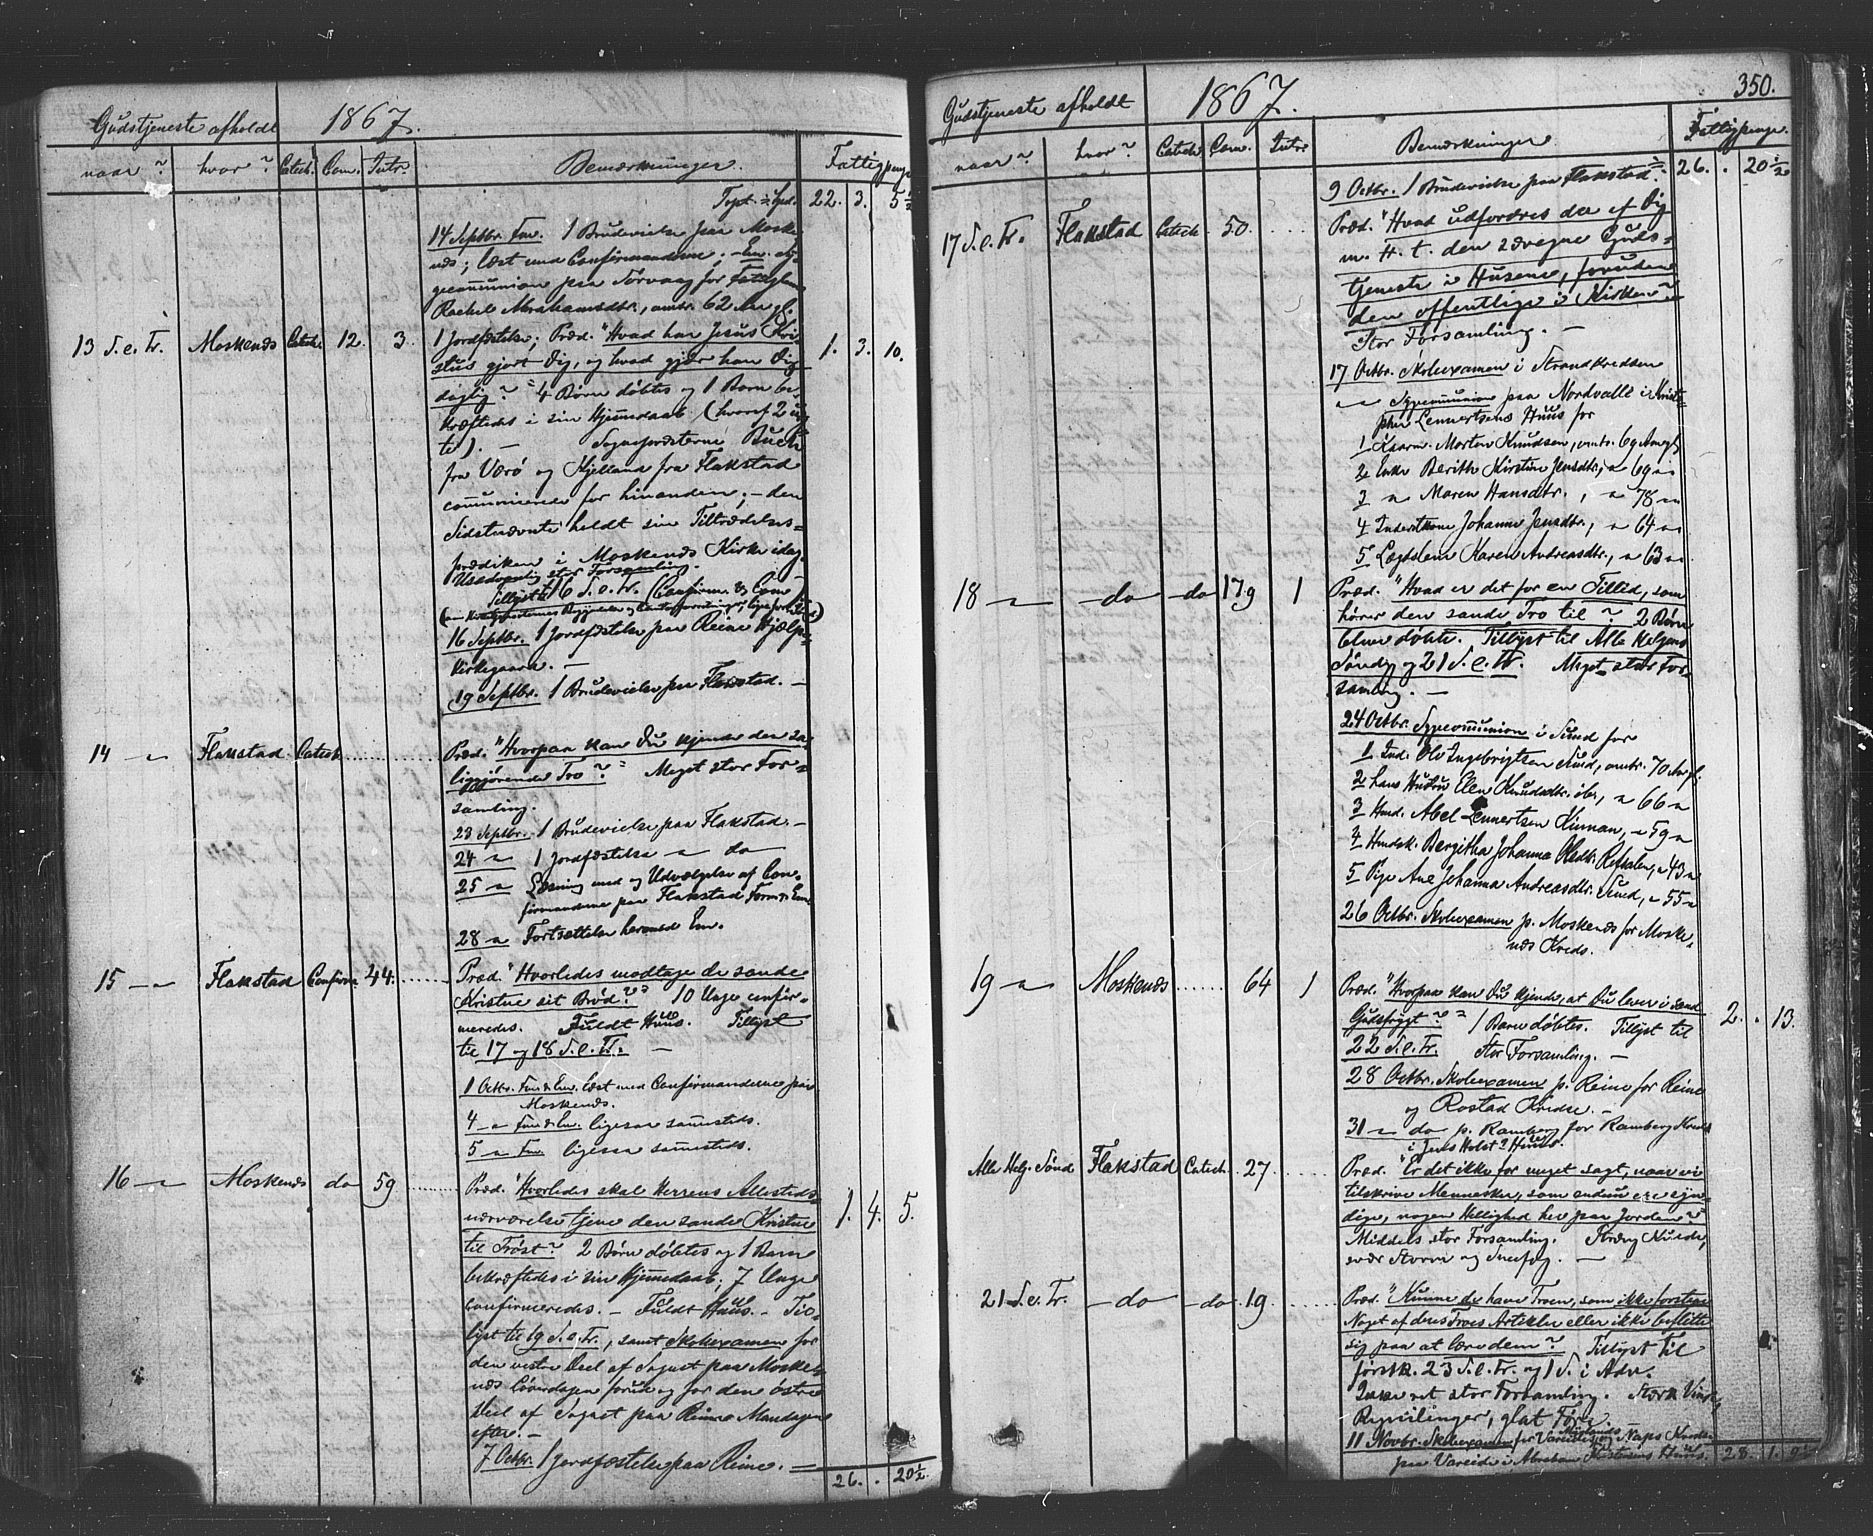 Gudstjeneste afholdt 1867.
naar? hvor? Catech. Com. Intr. Bemærkninger. Fattigpenge
22. 3. 5 1/2
14 Septbr. Fm. 1 Brudevielse paa Moske-
næs; læst med Confirmanderne; – Em. Sy-
gecommunion paa Sørvaag for Fattiglem
Rachel Abrahamsdtr., omtr. 62 Aar gl.
13 S. e. Tr. Moskenæs Catech. 12. 3. 1 Jordfæstelse; Præd. "Hvad har Jesus Kri- 1. 3. 10.
stus gjort Dig, og hvad gjør han Dig
daglig?" 4 Børn døbtes og 1 Barn be-
kræftedes i sin Hjemmedaab (hvoraf 2 uæg-
te). – Sognepræsterne Buch
fra Værø og Kjelland fra Flakstad
communicerede for hinanden; – den
Sidstnævnte holdt sin Tiltrædelses-
prædiken i Moskenæs Kirke idag.
Usædvanlig stor Forsamling.
Tillyst til 16 S. e. Tr. (Confirm. & Com.
16 Septbr. 1 Jordfæstelse paa Reine Hjælpe-
kirkegaard. –
19 Septbr. 1 Brudevielse paa Flakstad. –
14 — " Flakstad Catech. Præd. "Hvorpaa kan Du kjende den sa-
liggjørende Tro?" Meget stor For-
samling.
23 Septbr. 1 Brudevielse paa Flakstad. –
24 — " 1 Jordfæstelse — " do
25 — " Læsning med og Udvælgelse af Con-
firmanderne paa Flakstad Form. & Em.
28 — " Fortsættelse hermed Em.
15 — " Flakstad Confirm. 44. Præd. "Hvorledes modtage de sande
Kristne sit Brød?" 10 Unge confir-
meredes. Fuldt Huus. Tillyst
til 17 og 18 S. e. Tr. –
1 Octbr. Fm & Em. læst med Confirmanderne paa
Moskenæs.
4 — " Fm & Em. ligesaa sammesteds.
5 — " Fm. ligesaa sammesteds.
16 — " Moskenæs do 59 Præd. "Hvorledes skal Herrens Allesteds- 1. 4. 5.
nærværelse tjene den sande Kristne
til Trøst?" 2 Børn døbtes og 1 Barn
bekræftedes i sin Hjemmedaab; 7 Unge
confirmeredes. – Fuldt Huus. – Til-
lyst til 19 S. e. Tr., samt Skoleexamen for
den vestre Deel af Sognet paa Moske-
næs Løverdagen forud og for den østre
Deel af Sognet paa Reine Mandagen
efter. –
7 Octbr. 1 Jordfæstelse paa Reine. –
26. . 20 1/2
350.
Gudstjeneste afholdt 1867.
naar? hvor? Catech. Com. Intr. Bemærkninger Fattigpenge.
26. . 20 1/2
9 Octbr. 1 Brudevielse paa Flakstad.
17 S. e. Tr. Flakstad Catech. 50. Præd. "Hvad udfordres der af Dig
m. H. t. den særegne Guds-
tjeneste i Husene, foruden
den offentlige i Kirken?"
Stor Forsamling. –
17 Octbr. Skoleexamen i Strandkredsen
— " Sygecommunion paa Nordvalle i Kristo-
pher Lennertsens Huus for
1 Morten Knudsen, omtr. 69 Aar gl.
2 Enke Berith Kirstine Jensdtr., " 69 "
3 " Maren Hansdtr., " 78 "
4 Johanne Jensdtr., " 64 "
5 Lægdslem Karen Andreasdtr., " 63 "
18 — " do do 179 1 Præd. "Hvad er det for en Tillid, som
hører den sande Tro til?" 2 Børn
bleve døbte. Tillyst til Alle Helgens
Søndg og 21 S. e. Tr. Meget stor For-
samling. –
24 Octbr. Sygecommunion i Sund for
1 Ind. Ole Ingebrigtsen Sund, omtr. 70 Aar gl.
2 hans Hustru Elen Knudsdtr. ibr., " 66 "
3 Hmd. Abel Lennertsen " 59 "
4 Bergitha Johanna Olsdtr. " 43 "
5 Pige Ane Johanna Andreasdtr. Sund, " 55 "
26 Octbr. Skoleexamen p. Moskenæs for Moske-
næs Kreds.
19 — " Moskenæs 64 1 Præd. "Hvorpaa kan Du kjende, at Du lever i sand
Gudsfrygt?" 1 Barn døbtes. Tillyst til 2. . 13.
22 S. e. Tr. Stor Forsamling. –
28 Octbr. Skoleexamen p. Reine for Reine
og Rostad Kredse. –
31 — " do p. Ramberg for Ramberg Kreds
i Jens Holst's Huus.
Alle Helg. Sønd. Flakstad Catech. 27. Præd. "Er det ikke for meget sagt, naar vi
tilskrive Mennesker, som endnu ere syn-
dige, nogen Hellighed her paa Jorden?"
Middels stor Forsamling. Streng Kulde,
svær Storm og Snefog. –
21 S. e. Tr. do do 19 Præd. "Kunne de have Troen, som ikke forstaae
Noget af dens Troes Artikler eller ikke beflitte
sig paa at lære dem?" Tillyst til
førstk. 23 S. e. Tr. og 1 S. i Adv.
Ikke ret stor Forsamling. Stærk Vind,
glat Føre.
11 Novbr. Skoleexamen for Vareide, og Naps Kredse
paa Vareide i Abraham Huus.
28. 1.